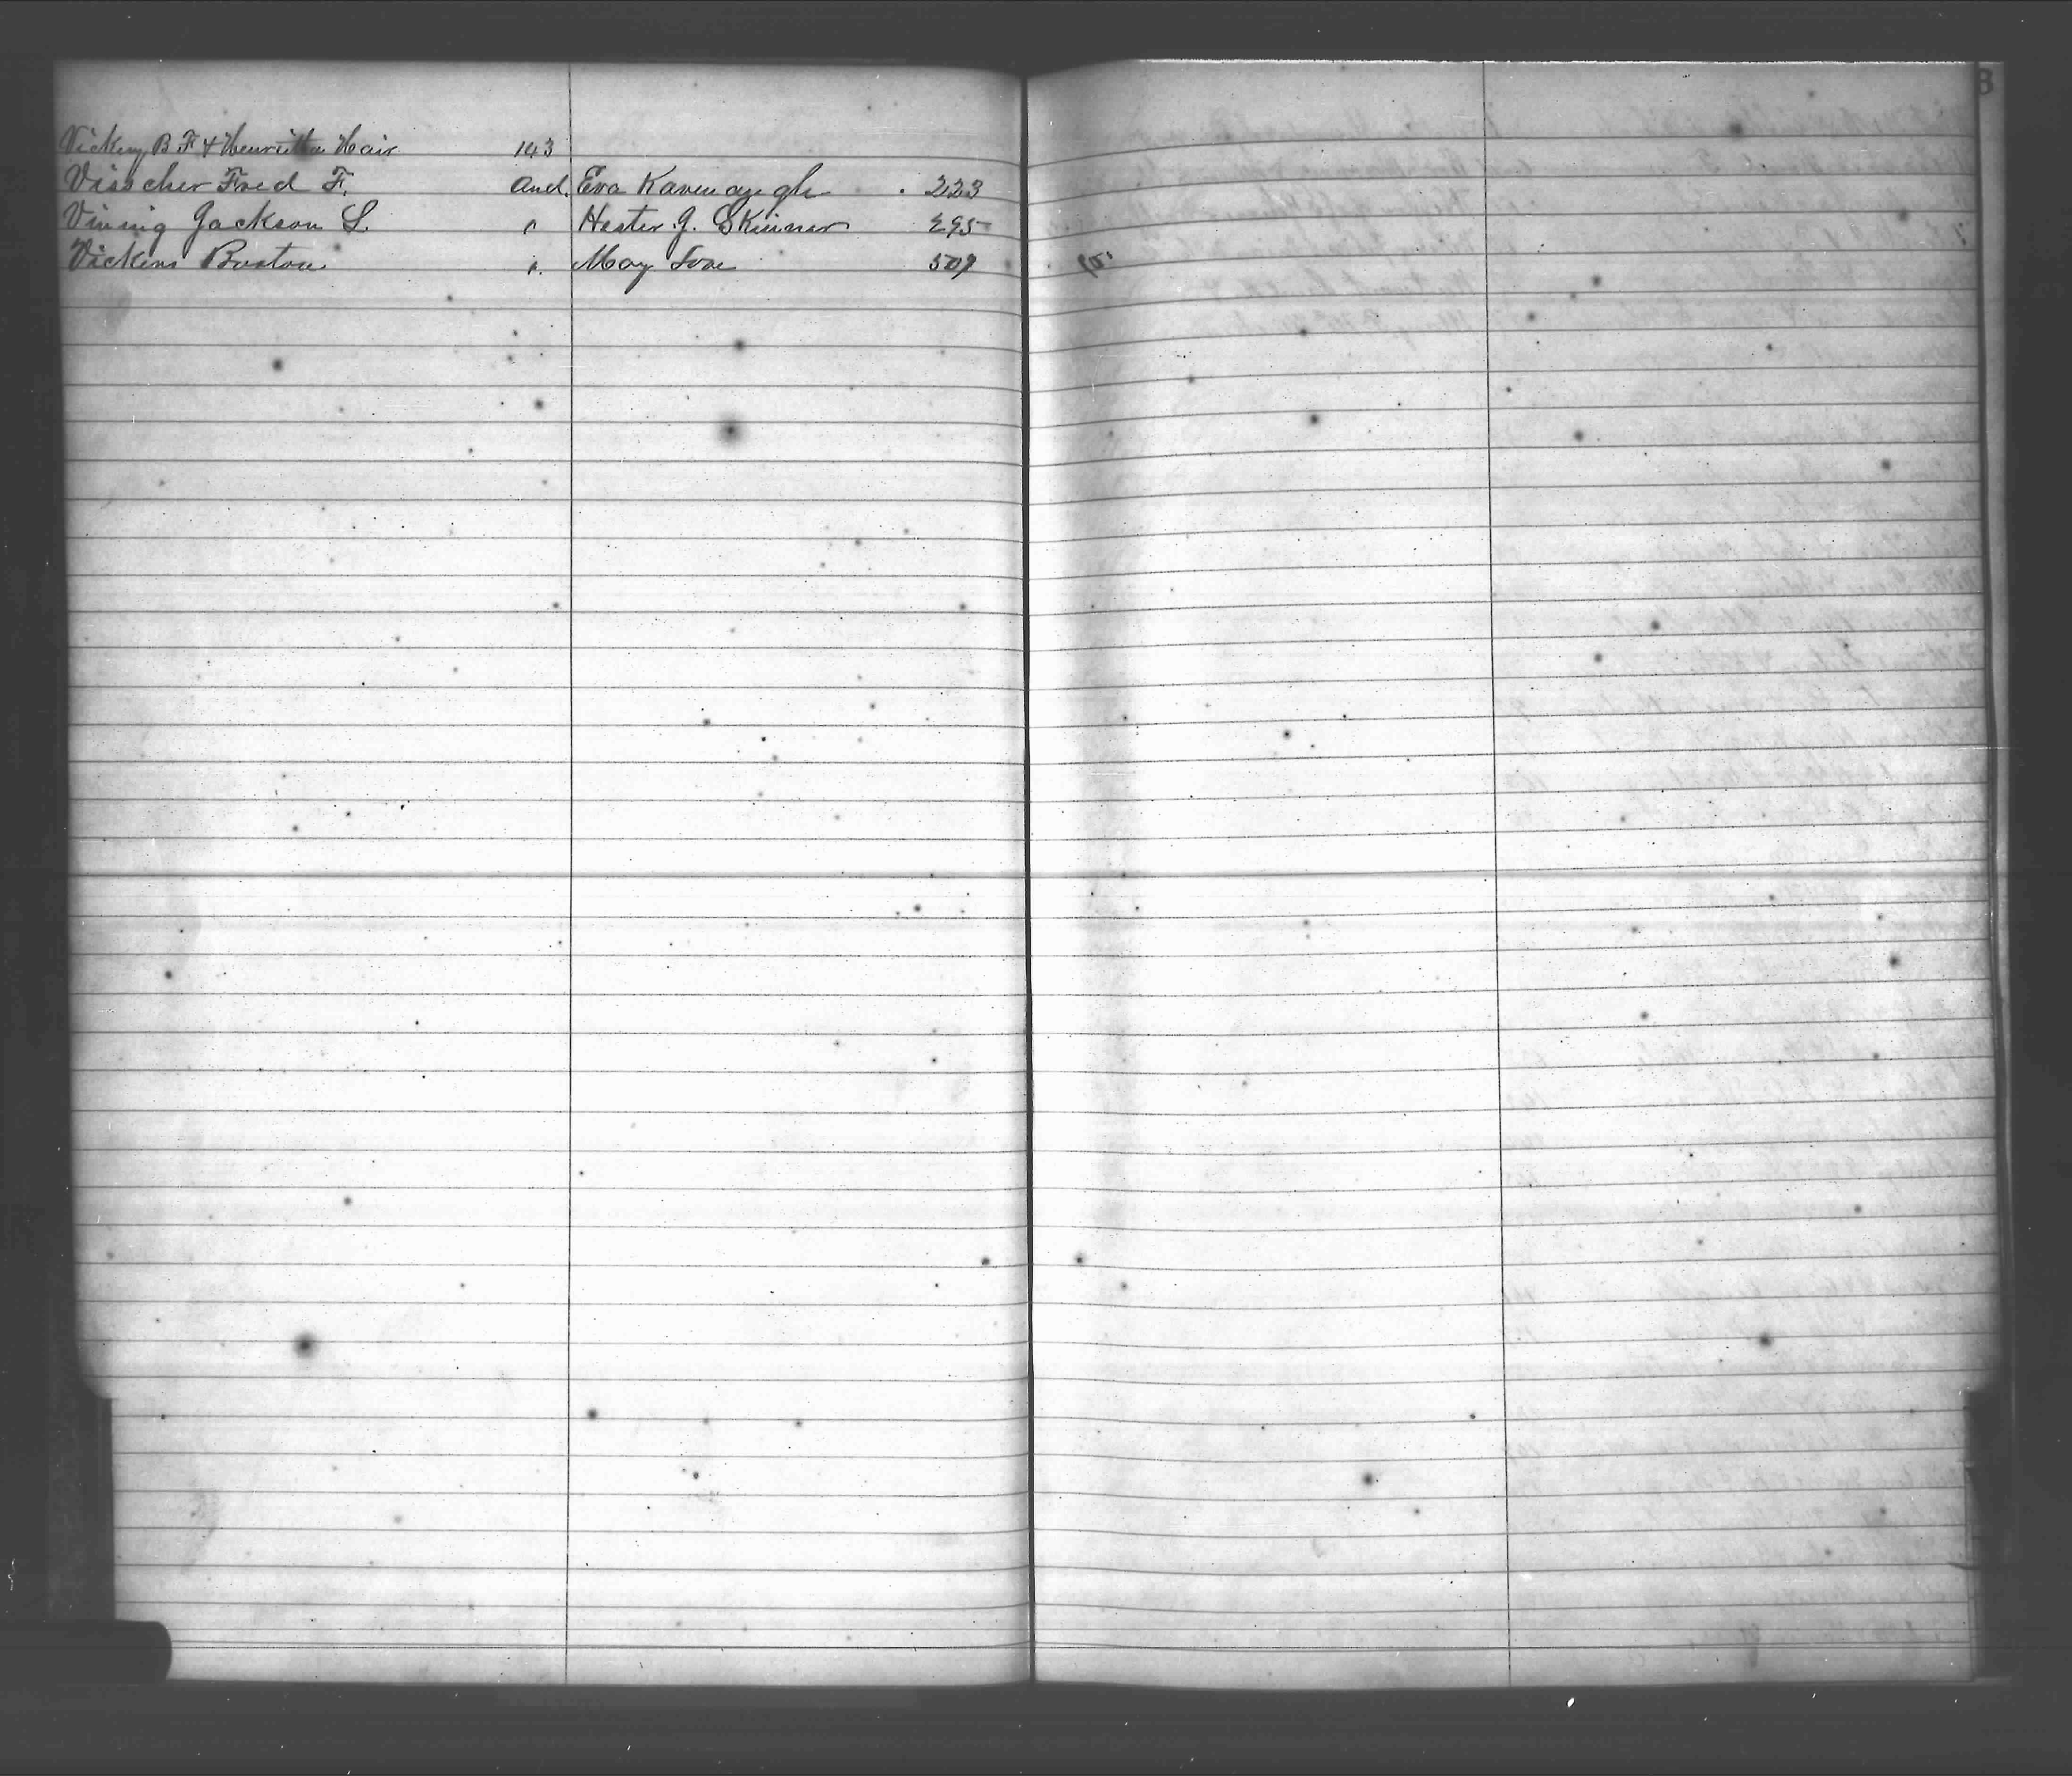 Vickery B F & Henrietta Hair 143
Visscher Fred F. and Eva Kavenaugh 223
Vining Jackson L. " Hester J. Skinner 295
Vickens Burton " May 507